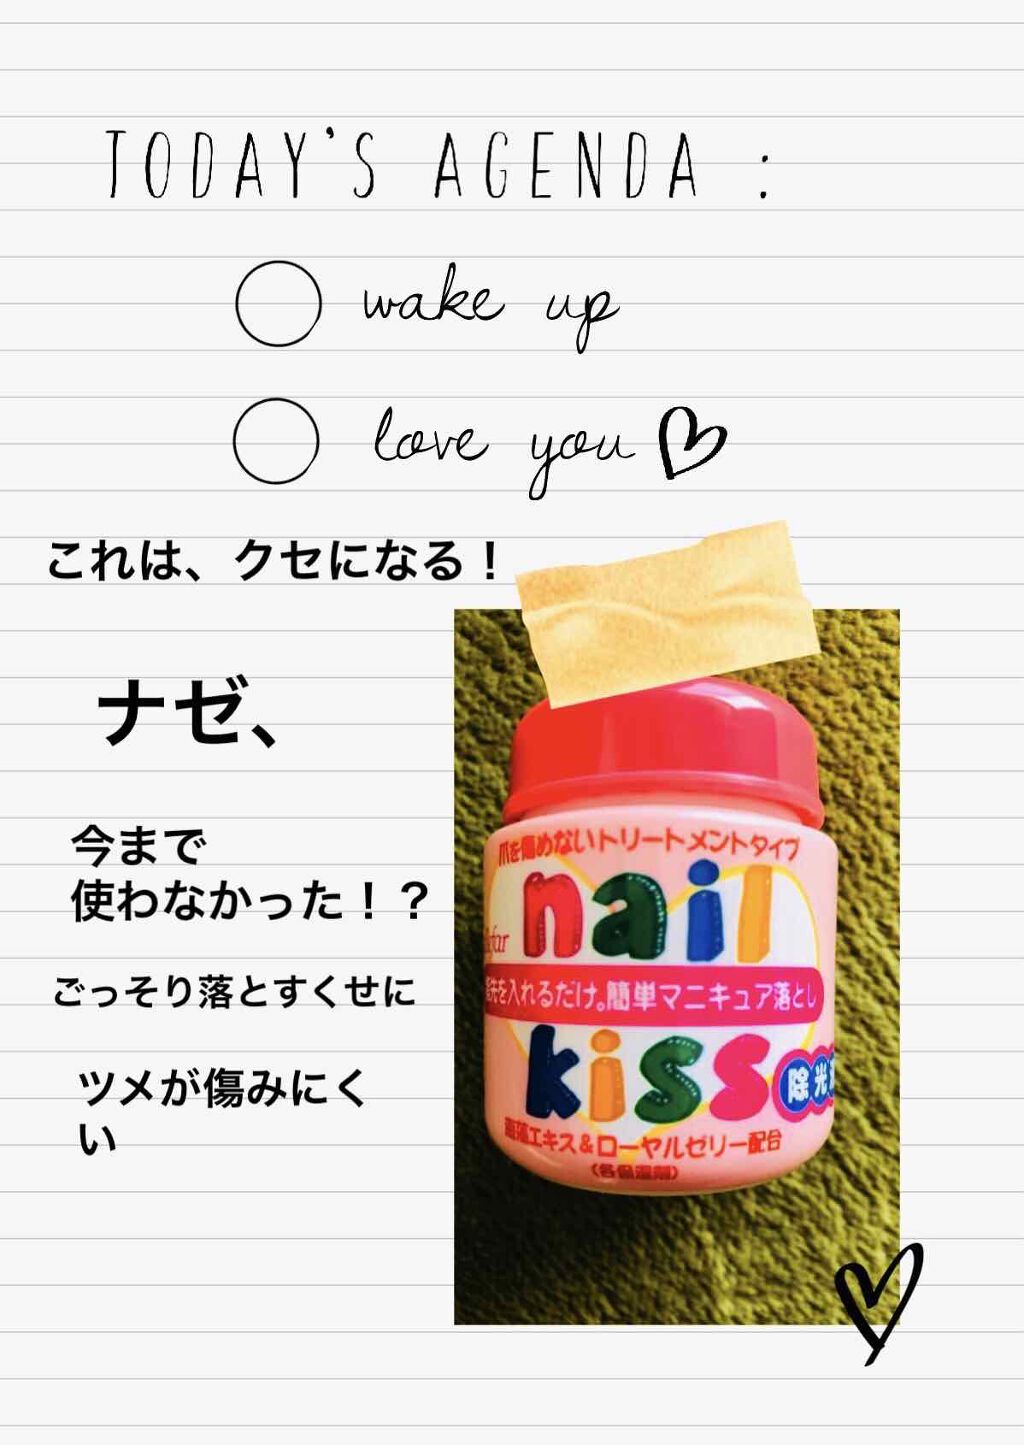 TODAY'S AGENDA :
wake up
love you
これは、クセになる！
ナゼ、
今まで
使わなかった！？
ごっそり落とすくせに
ツメが傷みにく
い
爪を傷めないトリートメントタイプ
nail
を入れるだけ。簡単マニキュア落とし
kiss
除光
海藻エキス＆ローヤルゼリー配合
(各保湿剤)